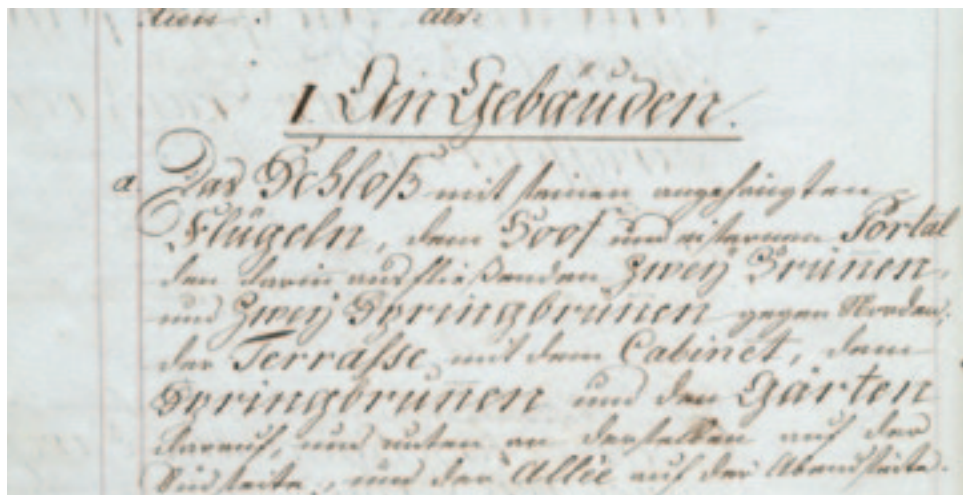 I. An Gebäuden.
a. Das Schloß mit seinen angehängten
Flügeln, dem Hoof und eisernen Portal
den darin ausfließenden Zweÿ Brun̄en,
und Zweÿ Springbrun̄en gegen Norden,
der Terrasse, mit dem Cabinet, dem
Springbrun̄en und den Gärten
darauf, und unten an derselben auf der
Südseite, und der Allée auf der Abendseite.